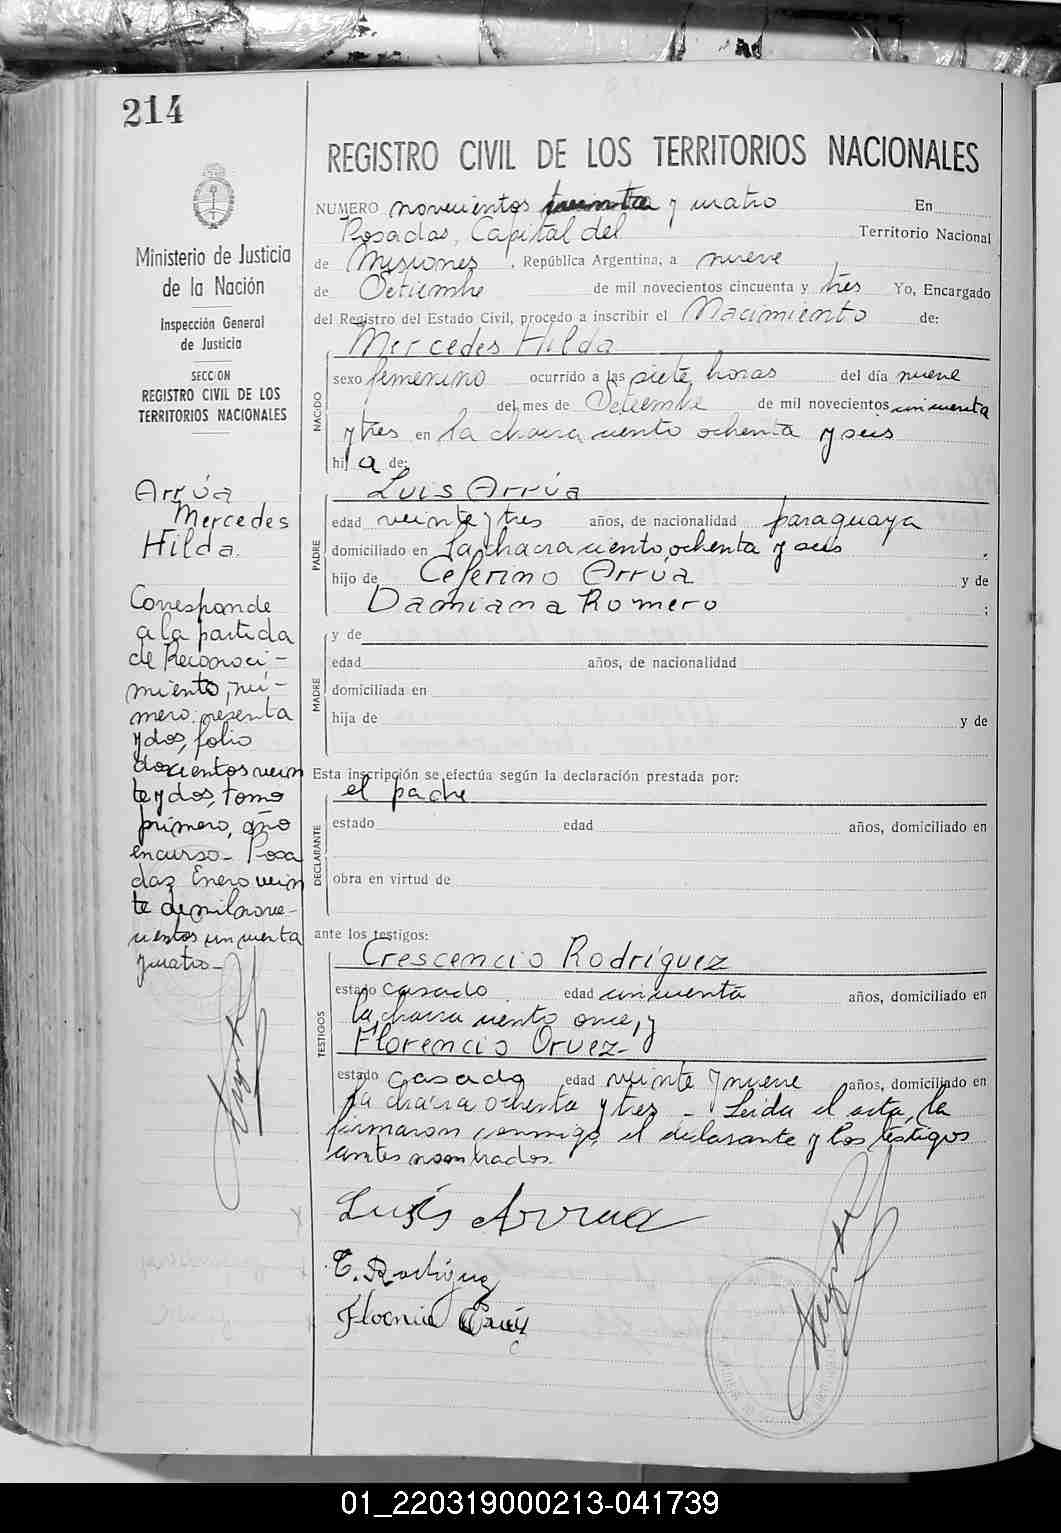 214
REGISTRO CIVIL DE LOS TERRITORIOS NACIONALES
NUMERO novecientos treinta y cuatro En
Posadas, Capital del Territorio Nacional
de Misiones, República Argentina, a nueve
de Setiembre de mil novecientos cincuenta y tres Yo, Encargado
del Registro del Estado Civil, procedo a inscribir el Nacimiento de:
Mercedes Hilda
NACIDO
sexo femenino ocurrido a las siete horas del día nueve
del mes de Setiembre de mil novecientos cincuenta
y tres en la chacra ciento ochenta y seis
hij a de:
Luis Arrúa
PADRE
edad veinte y tres años, de nacionalidad paraguaya
domiciliado en la chacra ciento ochenta y seis
hijo de Ceferino Arrúa y de
Damiana Romero ;
MADRE
y de
edad años, de nacionalidad
domiciliada en
hija de y de
Esta inscripción se efectúa según la declaración prestada por:
el padre
DECLARANTE
estado edad años, domiciliado en
obra en virtud de
ante los testigos:
Crescencio Rodríguez
TESTIGOS
estado casado edad cincuenta años, domiciliado en
la chacra ciento once, y
Florencio Oruez-
estado casado edad veinte y nueve años, domiciliado en
la chacra ochenta y tres - Leida el acta, la
firmaron conmigo, el declarante y los testigos
antes nombrados.
Luis Arrua
C. Rodriguez
Ministerio de Justicia
de la Nación
Inspección General
de Justicia
SECCION
REGISTRO CIVIL DE LOS
TERRITORIOS NACIONALES
Arrúa
Mercedes
Hilda.
Corresponde
a la partida
de Reconoci-
miento, nú-
mero sesenta
y dos, folio
doscientos vein
te y dos, tomo
primero, año
en curso- Posa
das Enero vein
te de mil nove-
cientos cincuenta
y cuatro-
01_220319000213-041739